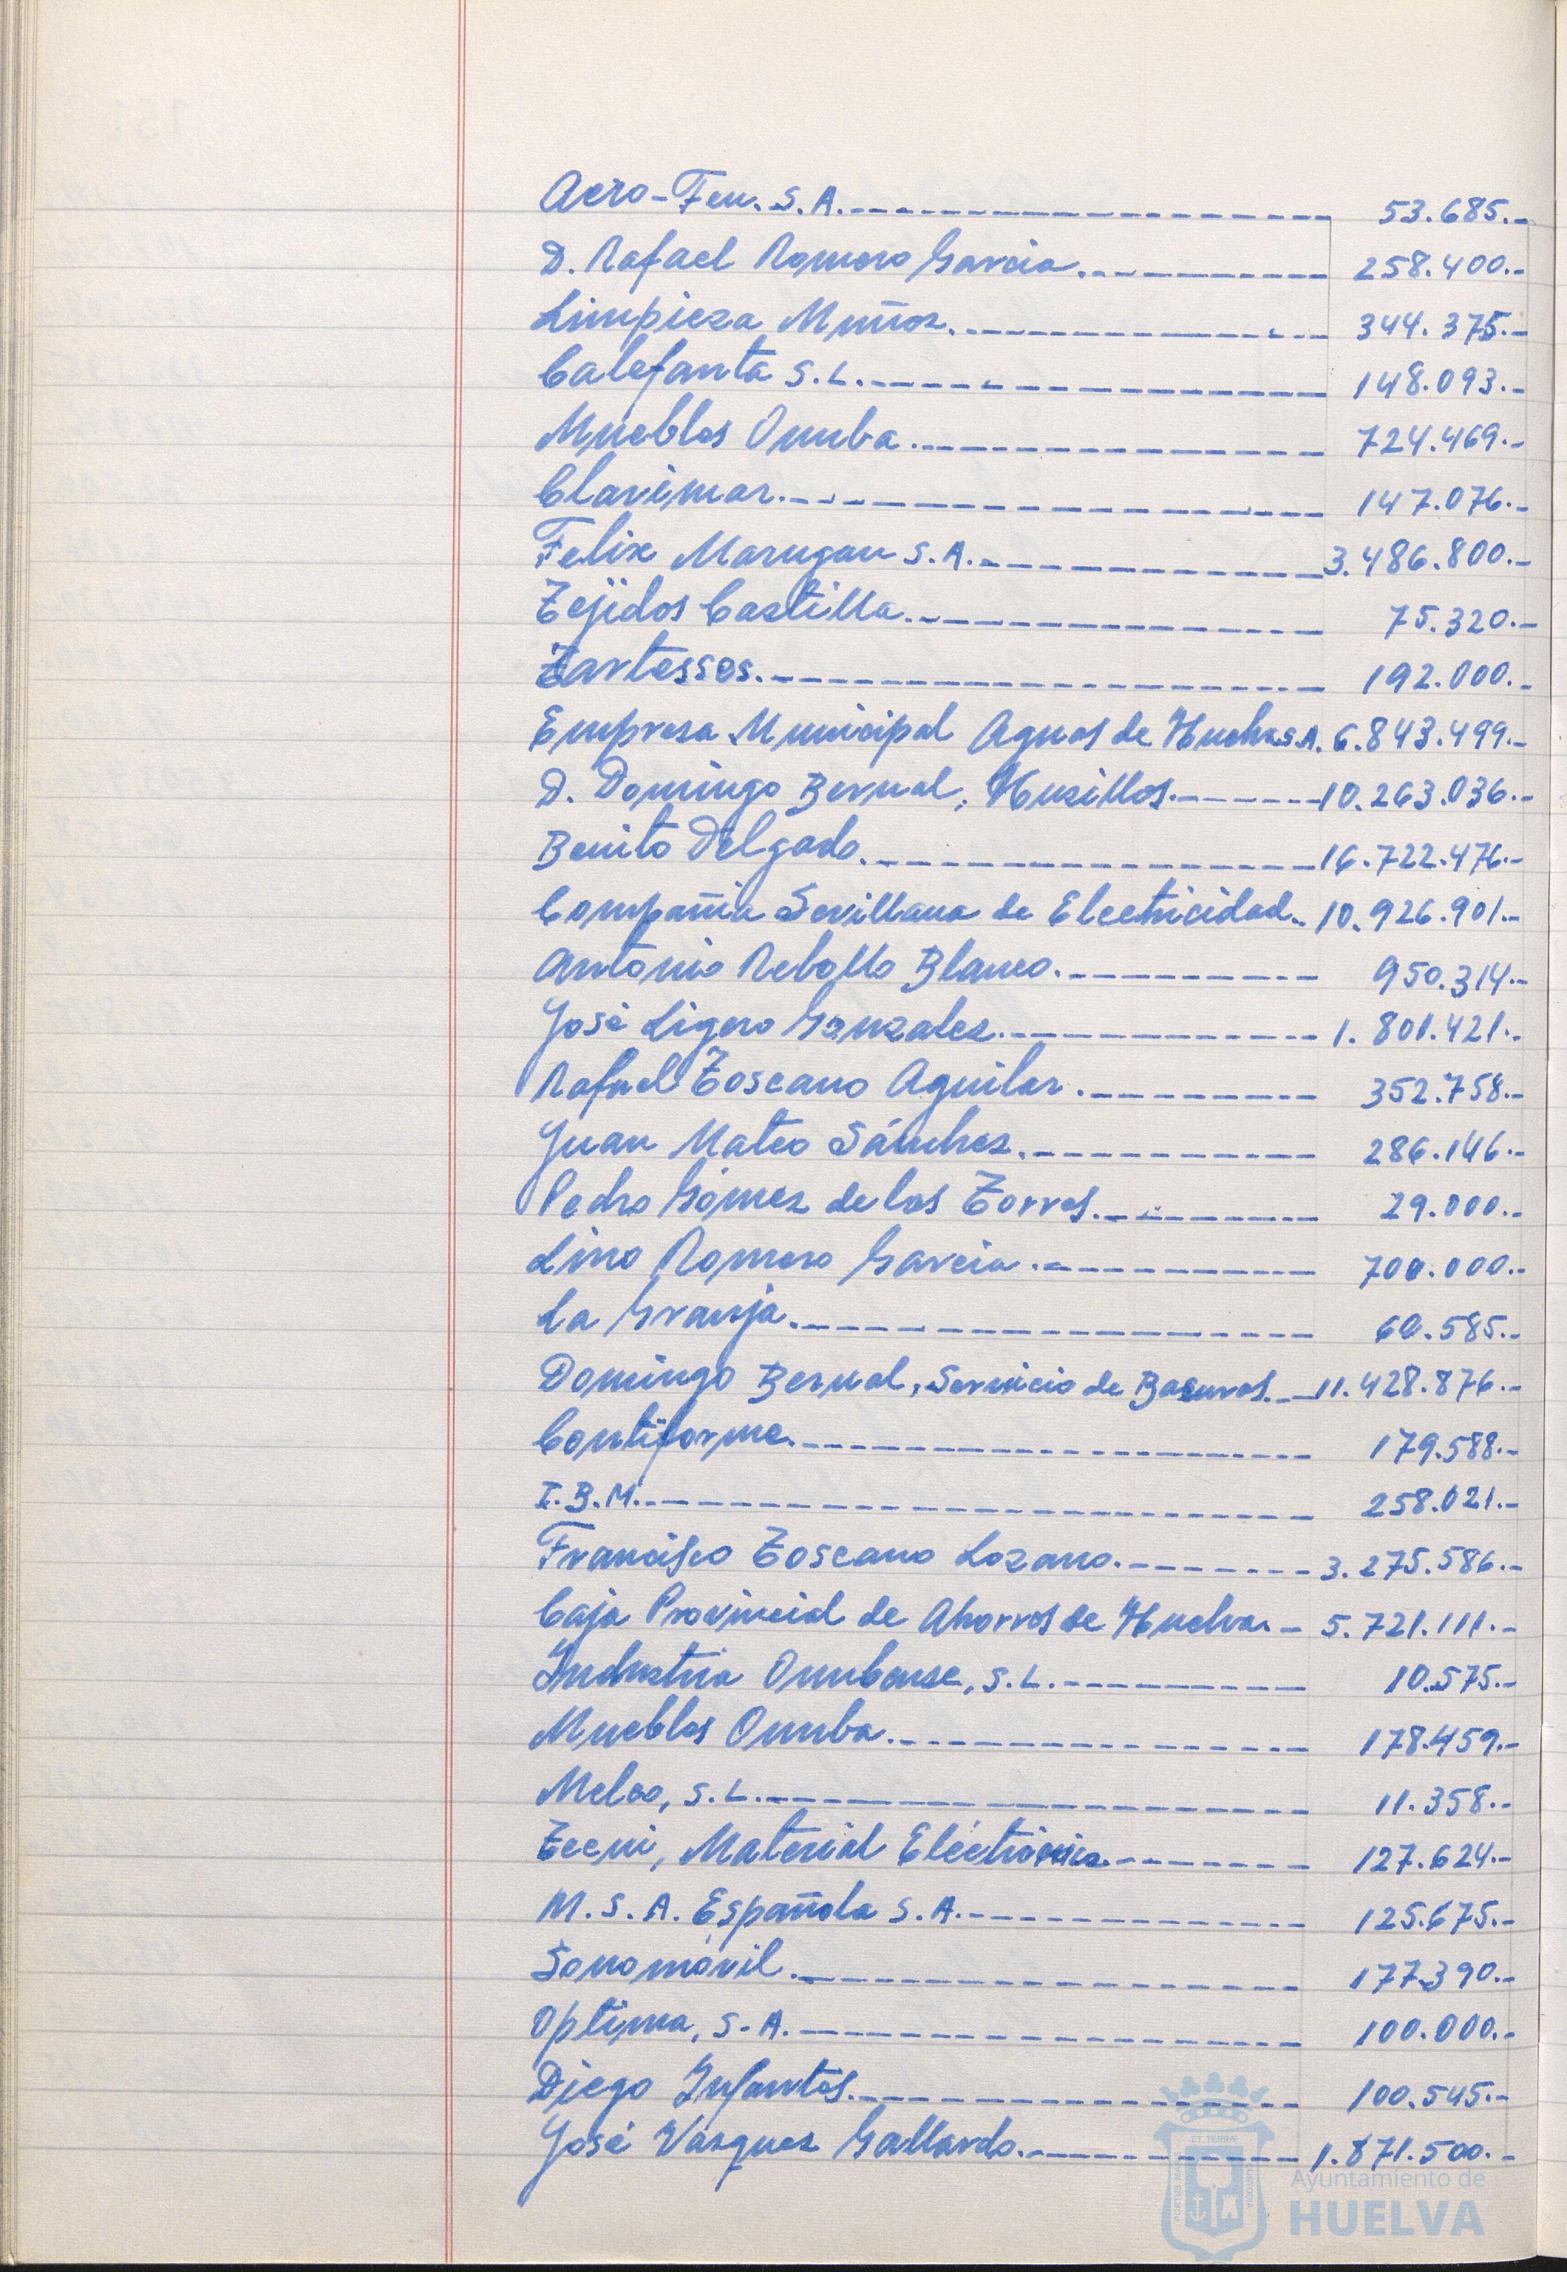 Aero-Feu. S.A. 53.685.-
D. Rafael Romero Garcia. 258.400.-
Limpieza Muñoz. 344.375.-
Calefanta S.L. 148.093.-
Muebles Onuba. 724.469.-
Clavimar. 147.076.-
Felix Marugan S.A. 3.486.800.-
Tejidos Castilla. 75.320.-
Tartessos. 192.000.-
Empresa Municipal Aguas de Huelva S.A. 6.843.499.-
D. Domingo Bernal, Husillos. 10.263.036.-
Benito Delgado. 16.722.476.-
Compañia Sevillana de Electricidad. 10.926.901.-
Antonio Rebollo Blanco. 950.314.-
José Ligero Gonzalez. 1.801.421.-
Rafael Toscano Aguilar. 352.758.-
Juan Mateo Sánchez. 286.146.-
Pedro Gómez de las Torres. 29.000.-
Lino Romero Garcia. 700.000.-
La Granja. 60.585.-
Domingo Bernal, Servicio de Basuras. 11.428.876.-
Contiforme. 179.588.-
I.B.M. 258.021.-
Francisco Toscano Lozano. 3.275.586.-
Caja Provincial de Ahorros de Huelva. 5.721.111.-
Industria Onubense, S.L. 10.575.-
Muebles Onuba. 178.459.-
Melco, S.L. 11.358.-
Tecni, Material Eléctrónico. 127.624.-
M.S.A. Española S.A. 125.675.-
Sonomóvil. 177.390.-
Optima, S.A. 100.000.-
Diego Infantes. 100.545.-
José Vazquez Gallardo. 1.871.500.-
Ayuntamiento de
HUELVA